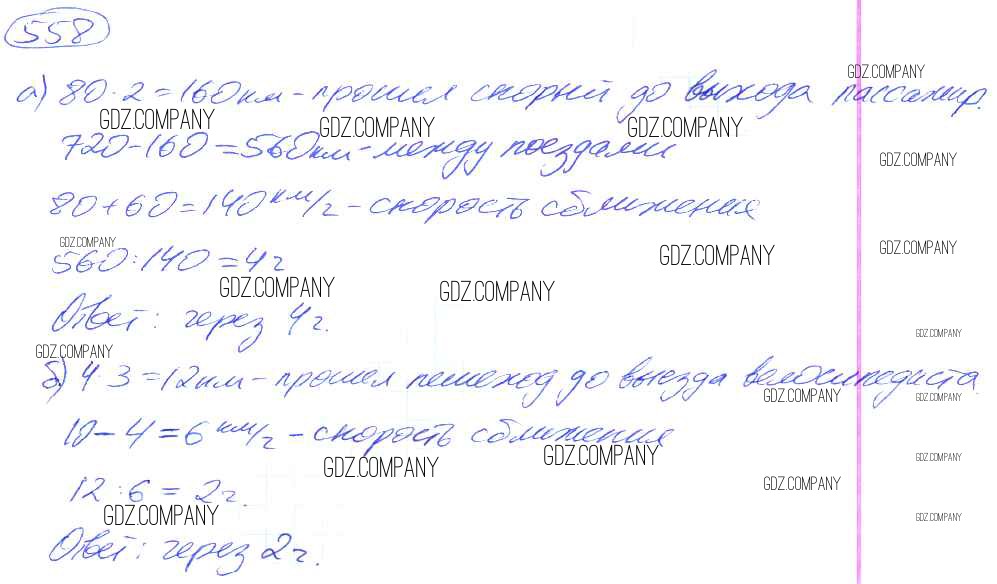 558
а) 80 · 2 = 160 км - прошел скорый до выхода пассажир.
GDZ.COMPANY
GDZ.COMPANY GDZ.COMPANY GDZ.COMPANY
720 - 160 = 560 км - между поездами
GDZ.COMPANY
80 + 60 = 140 км/ч - скорость сближения
GDZ.COMPANY GDZ.COMPANY GDZ.COMPANY
560 : 140 = 4 ч
GDZ.COMPANY GDZ.COMPANY
Ответ: через 4 ч.
GDZ.COMPANY
GDZ.COMPANY
б) 4 · 3 = 12 км - прошел пешеход до выезда велосипедиста
GDZ.COMPANY GDZ.COMPANY
10 - 4 = 6 км/ч - скорость сближения
GDZ.COMPANY GDZ.COMPANY GDZ.COMPANY
12 : 6 = 2 ч.
GDZ.COMPANY
GDZ.COMPANY GDZ.COMPANY
Ответ: через 2 ч.